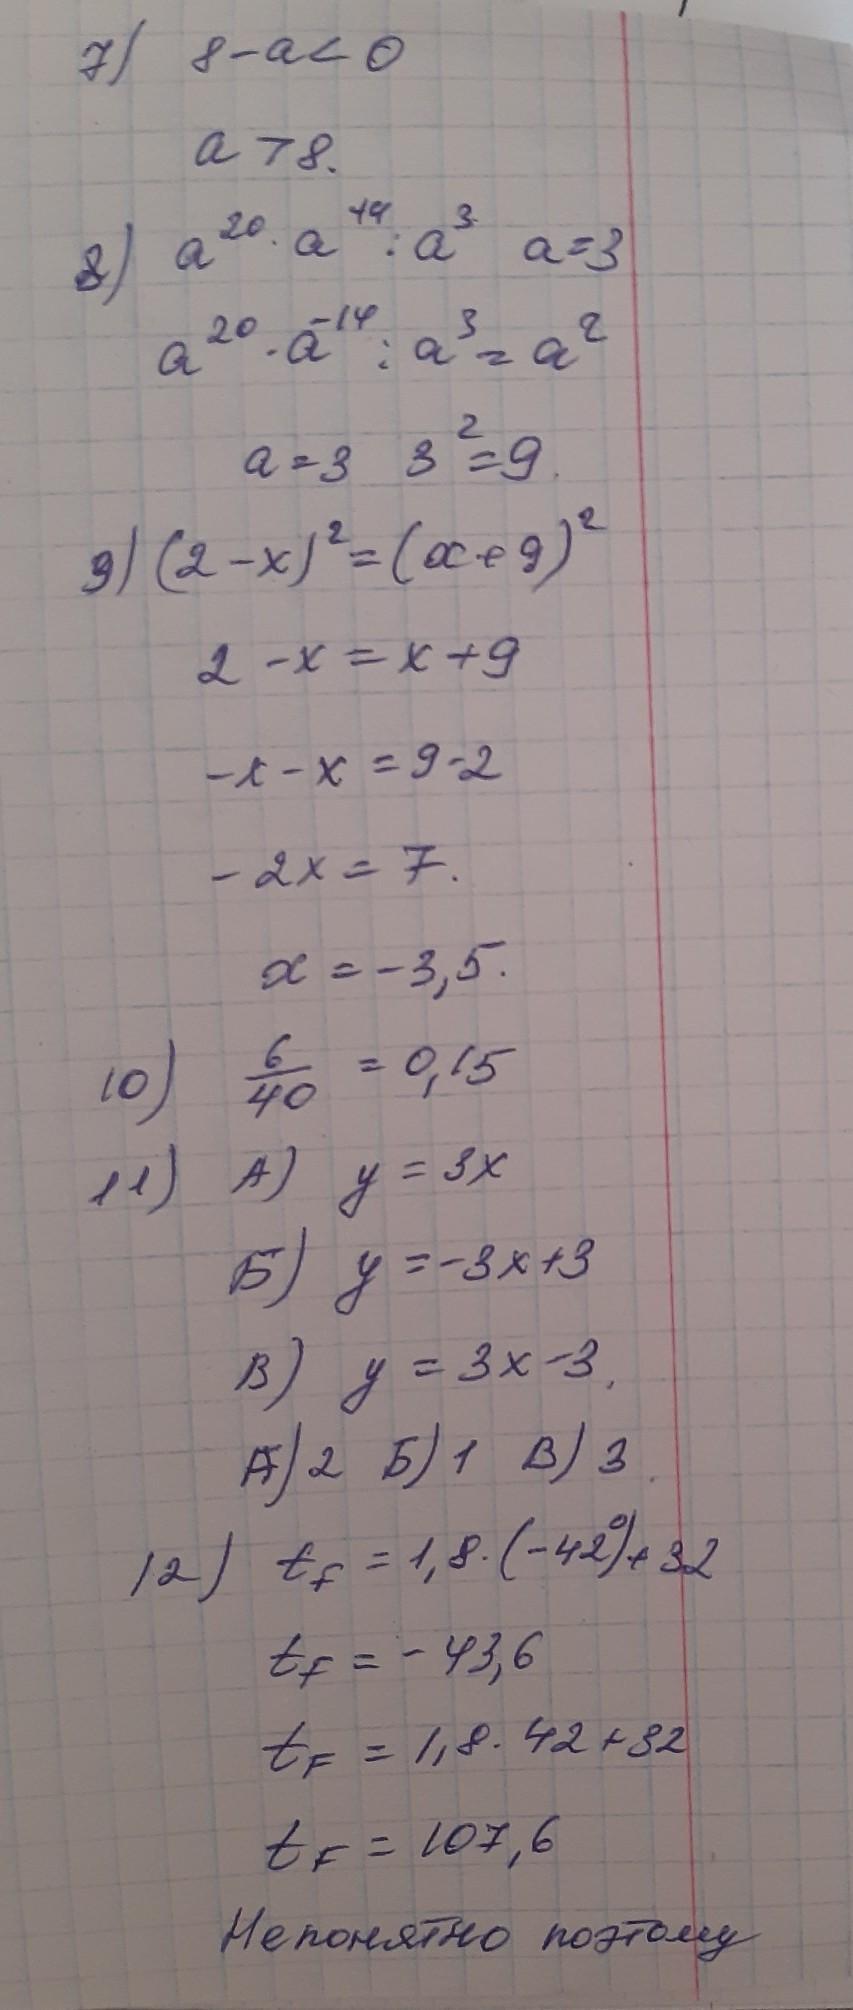 7) 8-a<0
a>8.
8) a²⁰·a⁻¹⁴:a³ a=3
a²⁰·a⁻¹⁴:a³=a²
a=3 3²=9.
9) (2-x)²=(x+9)²
2-x=x+9
-x-x=9-2
-2x=7.
x=-3,5.
10) 6/40 = 0,15
11) А) y=3x
Б) y=-3x+3
В) y=3x-3.
А) 2 Б) 1 В) 3.
12) t_F=1,8·(-42°)+32
t_F=-43,6
t_F=1,8·42+32
t_F=107,6
Непонятно поэтому